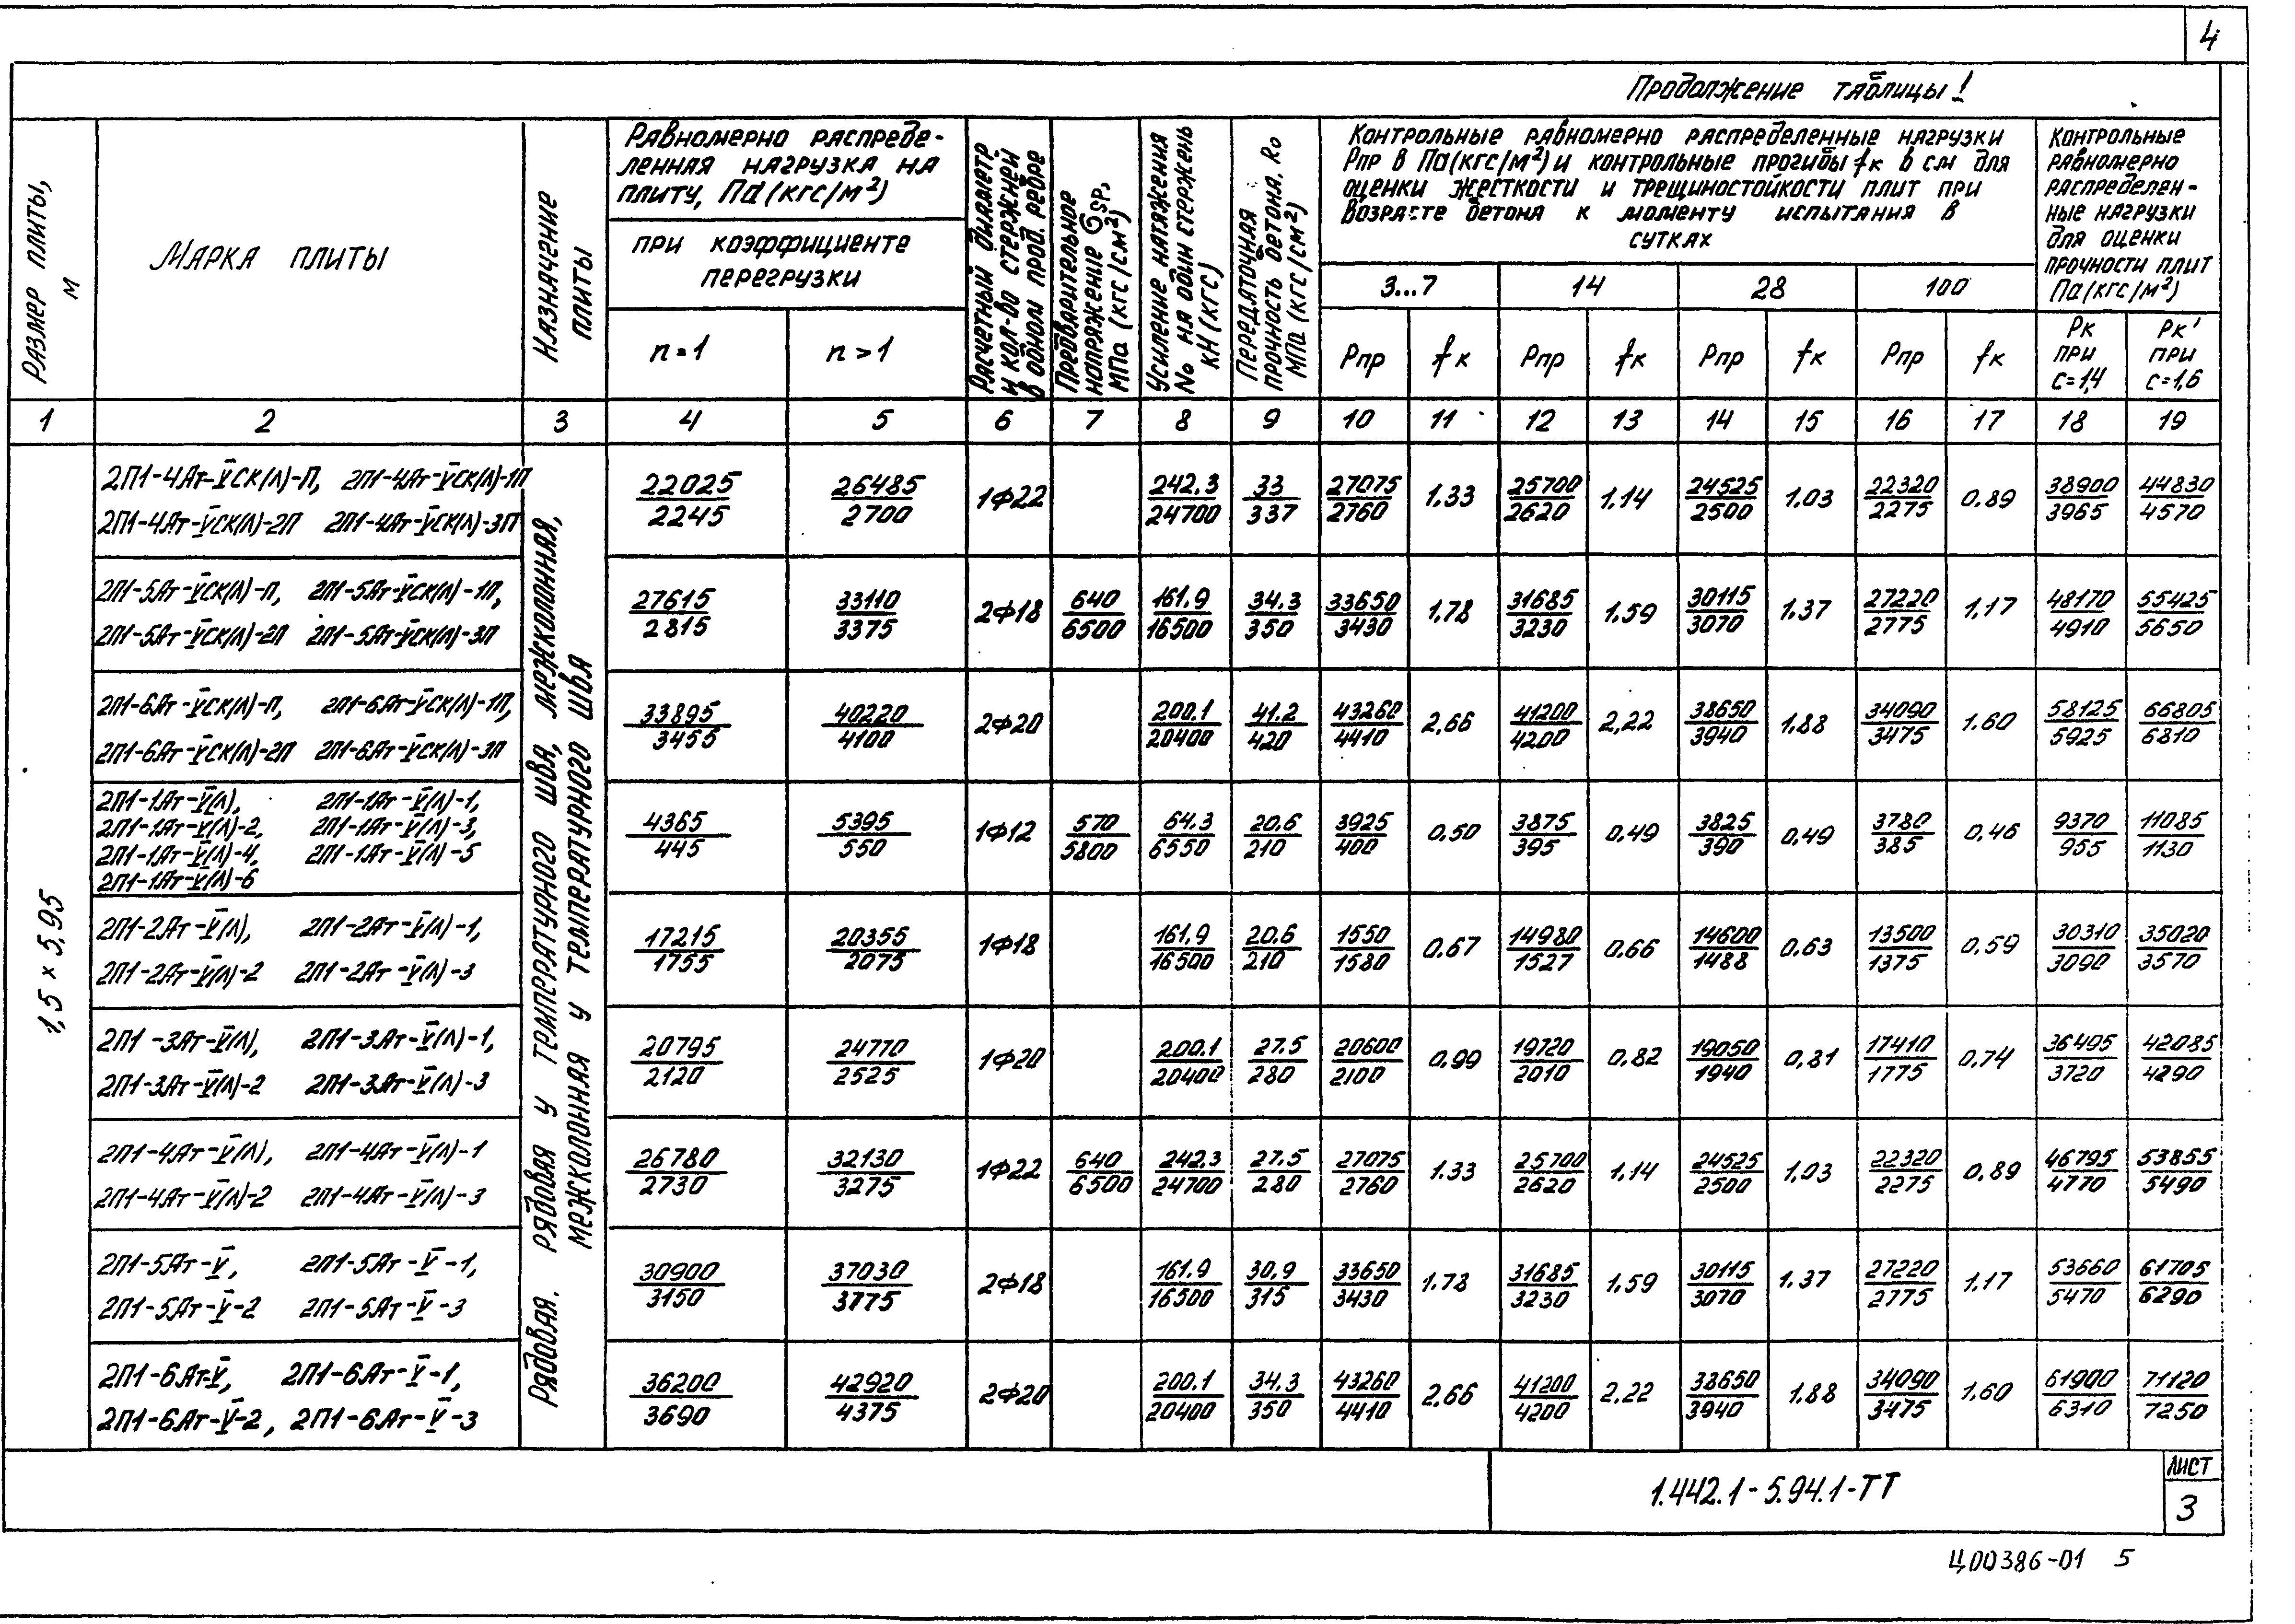 4
Продолжение таблицы 1
Размер плиты, м
Марка плиты
Назначение плиты
Равномерно распреде-
ленная нагрузка на
плиту, Па (кгс/м²)
при коэффициенте
перегрузки
n=1
n>1
Расчетный диаметр
и кол-во стержней
в одном прод. ребре
Предварительное
напряжение σsp,
МПа (кгс/см²)
Усиление натяжения
No на один стержень
кН (кгс)
Передаточная
прочность бетона, Ro
МПа (кгс/см²)
Контрольные равномерно распределенные нагрузки
Рпр в Па (кгс/м²) и контрольные прогибы fк в см для
оценки жесткости и трещиностойкости плит при
возрасте бетона к моменту испытания в
сутках
3...7 14 28 100
Рпр fк Рпр fк Рпр fк Рпр fк
Контрольные
равномерно
распределен-
ные нагрузки
для оценки
прочности плит
Па (кгс/м²)
Рк при с=1,4
Рк' при с=1,6
1 2 3 4 5 6 7 8 9 10 11 12 13 14 15 16 17 18 19
1,5 × 5,95
Рядовая. Рядовая у температурного шва, межколонная,
межколонная у температурного шва
2П1-4Ат-V̅СК(Л)-П, 2П1-4Ат-V̅СК(Л)-1П
2П1-4Ат-V̅СК(Л)-2П 2П1-4Ат-V̅СК(Л)-3П
22025/2245 26485/2700 1Ф22 242.3/24700 33/337 27075/2760 1.33 25700/2620 1.14 24525/2500 1.03 22320/2275 0.89 38900/3965 44830/4570
2П1-5Ат-V̅СК(Л)-П, 2П1-5Ат-V̅СК(Л)-1П,
2П1-5Ат-V̅СК(Л)-2П 2П1-5Ат-V̅СК(Л)-3П
27615/2815 33110/3375 2Ф18 640/6500 161.9/16500 34.3/350 33650/3430 1.78 31685/3230 1.59 30115/3070 1.37 27220/2775 1.17 48170/4910 55425/5650
2П1-6Ат-V̅СК(Л)-П, 2П1-6Ат-V̅СК(Л)-1П,
2П1-6Ат-V̅СК(Л)-2П 2П1-6Ат-V̅СК(Л)-3П
33895/3455 40220/4100 2Ф20 200.1/20400 41.2/420 43260/4410 2,66 41200/4200 2,22 38650/3940 1.88 34090/3475 1.60 58125/5925 66805/6810
2П1-1Ат-V̅(Л), 2П1-1Ат-V̅(Л)-1,
2П1-1Ат-V̅(Л)-2, 2П1-1Ат-V̅(Л)-3,
2П1-1Ат-V̅(Л)-4, 2П1-1Ат-V̅(Л)-5
2П1-1Ат-V̅(Л)-6
4365/445 5395/550 1Ф12 570/5800 64.3/6550 20.6/210 3925/400 0.50 3875/395 0.49 3825/390 0.49 3780/385 0,46 9370/955 11085/1130
2П1-2Ат-V̅(Л), 2П1-2Ат-V̅(Л)-1,
2П1-2Ат-V̅(Л)-2 2П1-2Ат-V̅(Л)-3
17215/1755 20355/2075 1Ф18 161.9/16500 20.6/210 1550/1580 0.67 14980/1527 0.66 14600/1488 0.63 13500/1375 0,59 30310/3090 35020/3570
2П1-3Ат-V̅(Л), 2П1-3Ат-V̅(Л)-1,
2П1-3Ат-V̅(Л)-2 2П1-3Ат-V̅(Л)-3
20795/2120 24770/2525 1Ф20 200.1/20400 27.5/280 20600/2100 0,99 19720/2010 0,82 19050/1940 0,81 17410/1775 0,74 36495/3720 42085/4290
2П1-4Ат-V̅(Л), 2П1-4Ат-V̅(Л)-1
2П1-4Ат-V̅(Л)-2 2П1-4Ат-V̅(Л)-3
26780/2730 32130/3275 1Ф22 640/6500 242.3/24700 27.5/280 27075/2760 1.33 25700/2620 1,14 24525/2500 1,03 22320/2275 0,89 46795/4770 53855/5490
2П1-5Ат-V̅, 2П1-5Ат-V̅-1,
2П1-5Ат-V̅-2 2П1-5Ат-V̅-3
30900/3150 37030/3775 2Ф18 161.9/16500 30,9/315 33650/3430 1.78 31685/3230 1,59 30115/3070 1.37 27220/2775 1,17 53660/5470 61705/6290
2П1-6Ат-V̅, 2П1-6Ат-V̅-1,
2П1-6Ат-V̅-2, 2П1-6Ат-V̅-3
36200/3690 42920/4375 2Ф20 200.1/20400 34.3/350 43260/4410 2,66 41200/4200 2.22 38650/3940 1.88 34090/3475 1,60 61900/6310 71120/7250
1.442.1-5.94.1-ТТ
Лист
3
Ц00386-01 5